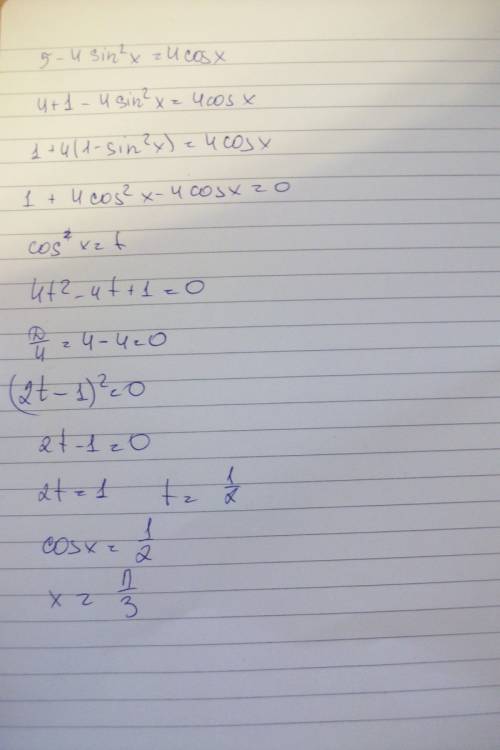 5 - 4 sin² x = 4 cos x
4 + 1 - 4 sin² x = 4 cos x
1 + 4(1 - sin² x) = 4 cos x
1 + 4 cos² x - 4 cos x = 0
cos² x = t
4t² - 4t + 1 = 0
D/4 = 4 - 4 = 0
(2t - 1)² = 0
2t - 1 = 0
2t = 1 t = 1/2
cos x = 1/2
x = π/3